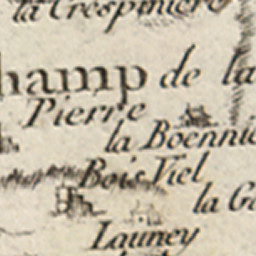 la Crespiniere
hamp de la
Pierre
la Boennie
Bois Viel
la Ga
Launey